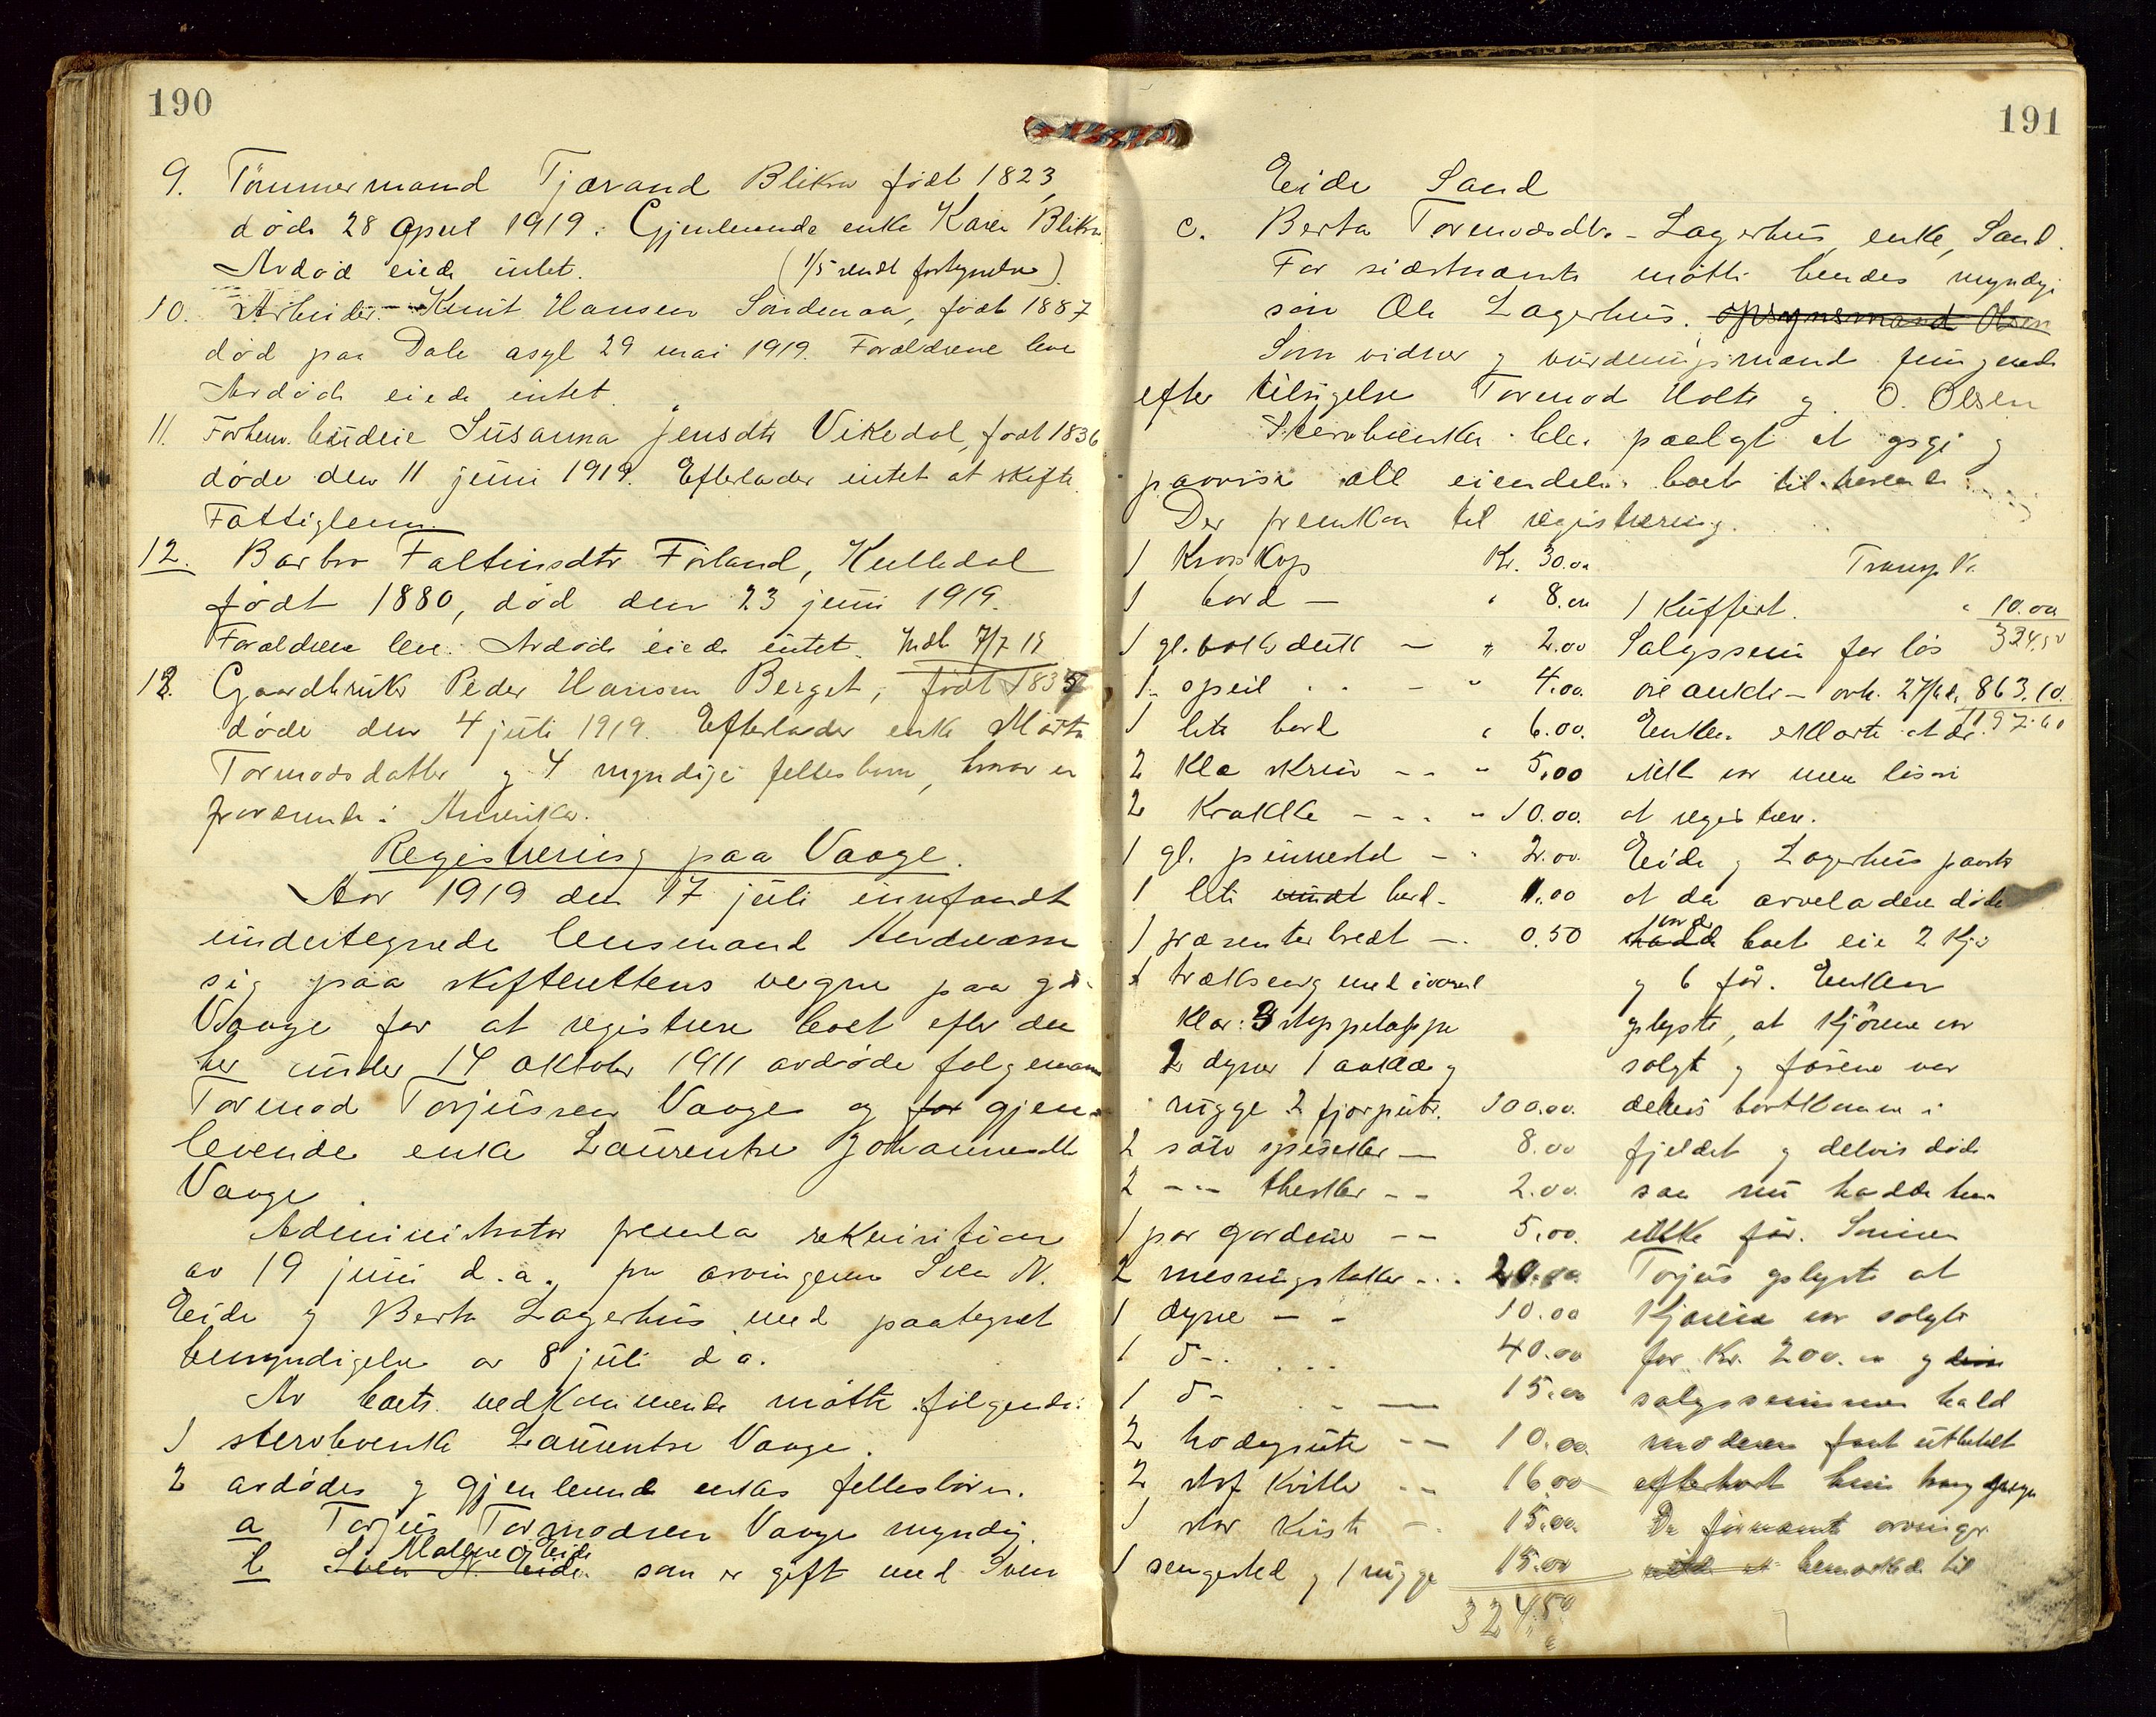 190
9. Tömmermand Tjærand Blikra född 1823,
döde 28 april 1919. Gjenlevende enke Karen Blikra
Avdöd eiede intet. (1/5 sendt forkynelse)
10. Arbeider Knut Hansen Söndenaa, född 1887
död paa Dale asyl 29 mai 1919. Forældrene leve
Avdöde eiede intet.
11. Forhenv. budeie Susanna Jensdtr Vikedal, född 1836
döde den 11 juni 1919. Efterlader intet at skifte
Fattiglem.
12. Barbro Faltinsdtr Förland, Kulledal
född 1880, död den 23 juni 1919.
Forældrene leve. Avdöde eiede intet. Indb. 7/7 19
13. Gaardbruker Peder Hansen Berget, född 1835
döde den 4 juli 1919. Efterlader enke Marta
Tormodsdatter og 4 myndige fellesbarn, hvorav en
fraværende i Amerika.
Registrering paa Vaage.
Aar 1919 den 17 juli innfandt
undertegnede lensmand
sig paa skifterettens vegne paa gd.
Vaage for at registrere boet efter den
her under 14 oktober 1911 avdöde folgemann
Tormod Torjussen Vaage og for gjen-
levende enke Laurentse Johannesdtr
Vaage.
Administrator fremla rekvisition
av 19 juni d.a. fra arvingene Sven N.
Eide og Berta Lagerhus med paategnet
bemyndigelse av 8 juli d.a.
Av boets vedkommende mötte fölgende:
1 stervboenke Laurentse Vaage.
2 avdödes og gjenlevende enkes fellesbörn.
a Torjus Tormodsen Vaage myndig.
Malene Eide
b Sven N. Eide som er gift med Sven
191
Eide Sand
c. Berta Tormodsdtr. Lagerhus, enke, Sand.
For sidstnævnte mötte hendes myndige
sön Ole Lagerhus. opsynsmand Olsen
Som vidner og vurderingsmænd fungerede
efter tilsigelse Tormod Holte og O. Olsen
Sterboenken blev paalagt at opgi og
paavise all eiendeler boet tilhörende.
Der fremkom til registrering.
1 Kross Kop Kr. 30.00
1 bord — " 8.00
1 gl. — " 2.00
1 speil — " 4.00
1 lite bord " 6.00
2 Klæ skrin — " 5.00
2 Krakke — " 10.00
1 gl. pinnestol — " 2.00
1 lite rundt bord — 1.00
1 præsenterbrett — 0.50
1 trækseng med iværende
klær: 3 steppetæppe
2 dyner 1 aaklæ og
rugge 2 fjærputer. 100.00
2 sölv spiseskeer — 8.00
2 -"- theskeer — 2.00
1 par gardiner — 5.00
2 messingstaker — 20.00
1 dyne — 10.00
1 d- 40.00
1 d- 15.00
2 hodeputer — 10.00
2 stof kvitler — 16.00
1 stor kiste — 15.00
1 sengested og 1 rugge 15.00
324.50
Transp. Kr.
1 Kuffert. " 10.00
334.50
Salgssum for lös
öre auktion — avh. 27/6 d. 863.10
1197.60
Enken erklærte at der
ikke var mere lösöre
at registrere.
Eide og Lagerhus paastod
at da arveladeren döde
hadde boet eie 2 kjör
og 6 får. Enken
oplyste, at kjörene var
solgt og fårene var
delvis bortkommen i
fjeldet og delvis döde
saa nu hadde hun
ikke får. Sönnen
Torjus oplyste at
Kjörene var solgte
for Kr. 200.00 og
salgssummen hadde
moderen faat utbetalt
efterhvert hun
De fornævnte arvinger
bemerkede til